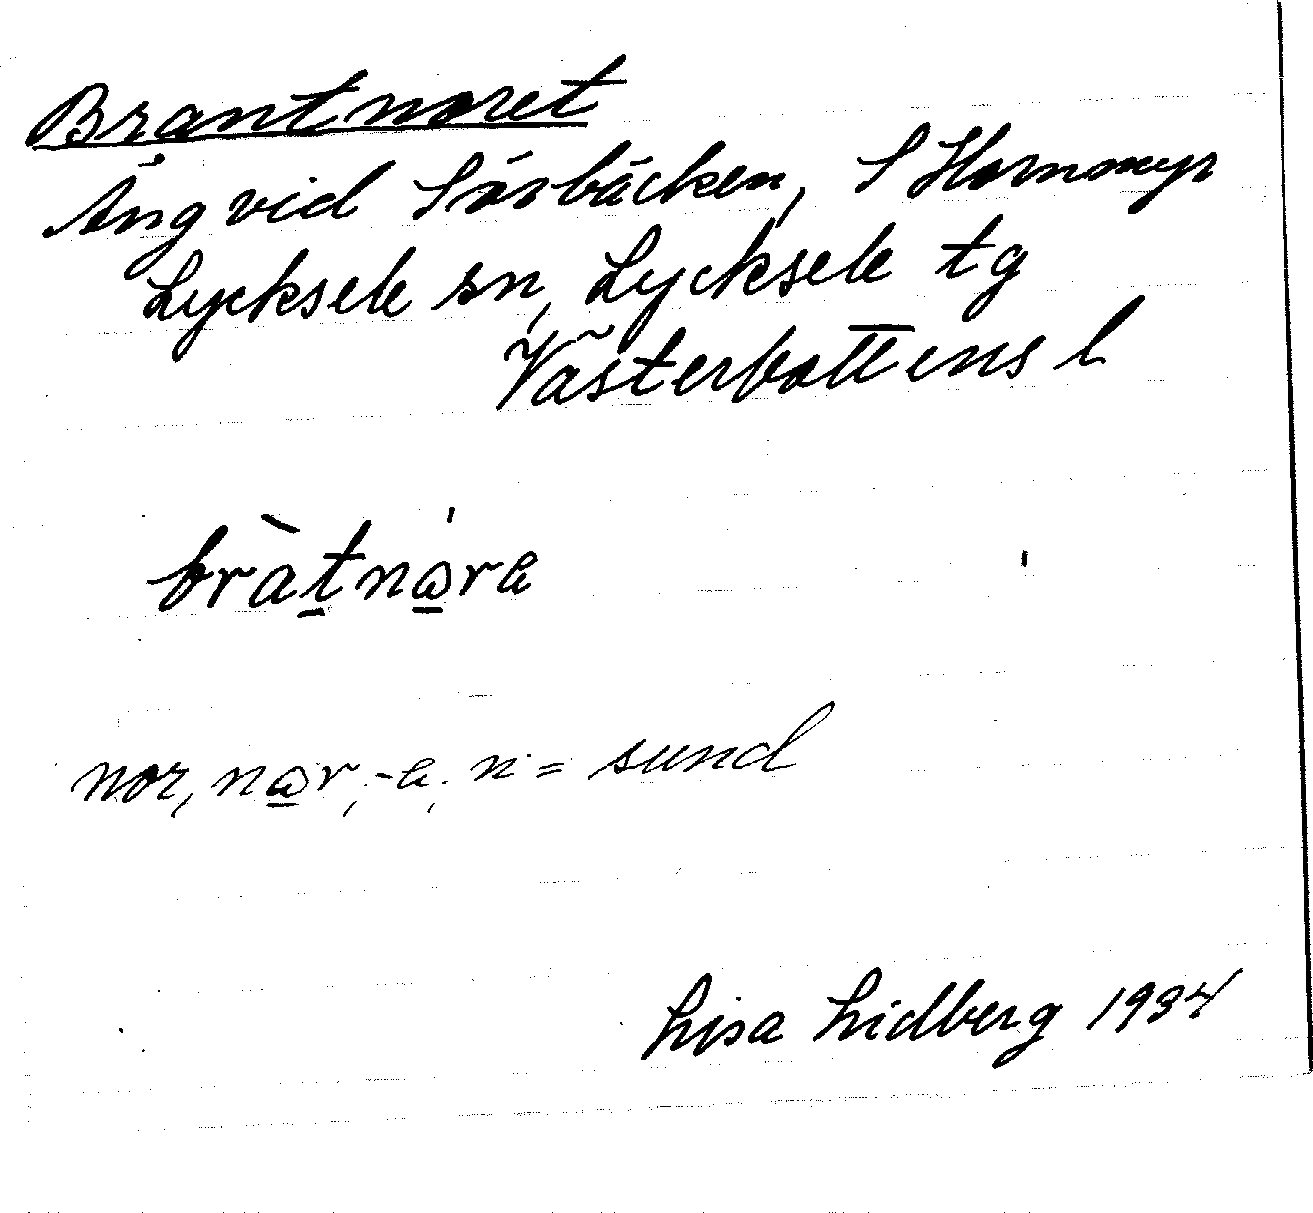 Brantnoret
Äng vid Sörbäcken, S Hornmyr
Lycksele sn, Lycksele tg
Västerbottens l
bràt̠nω̠ra
nor, nω̠r, -a, n = sund
Lisa Lidberg 1934